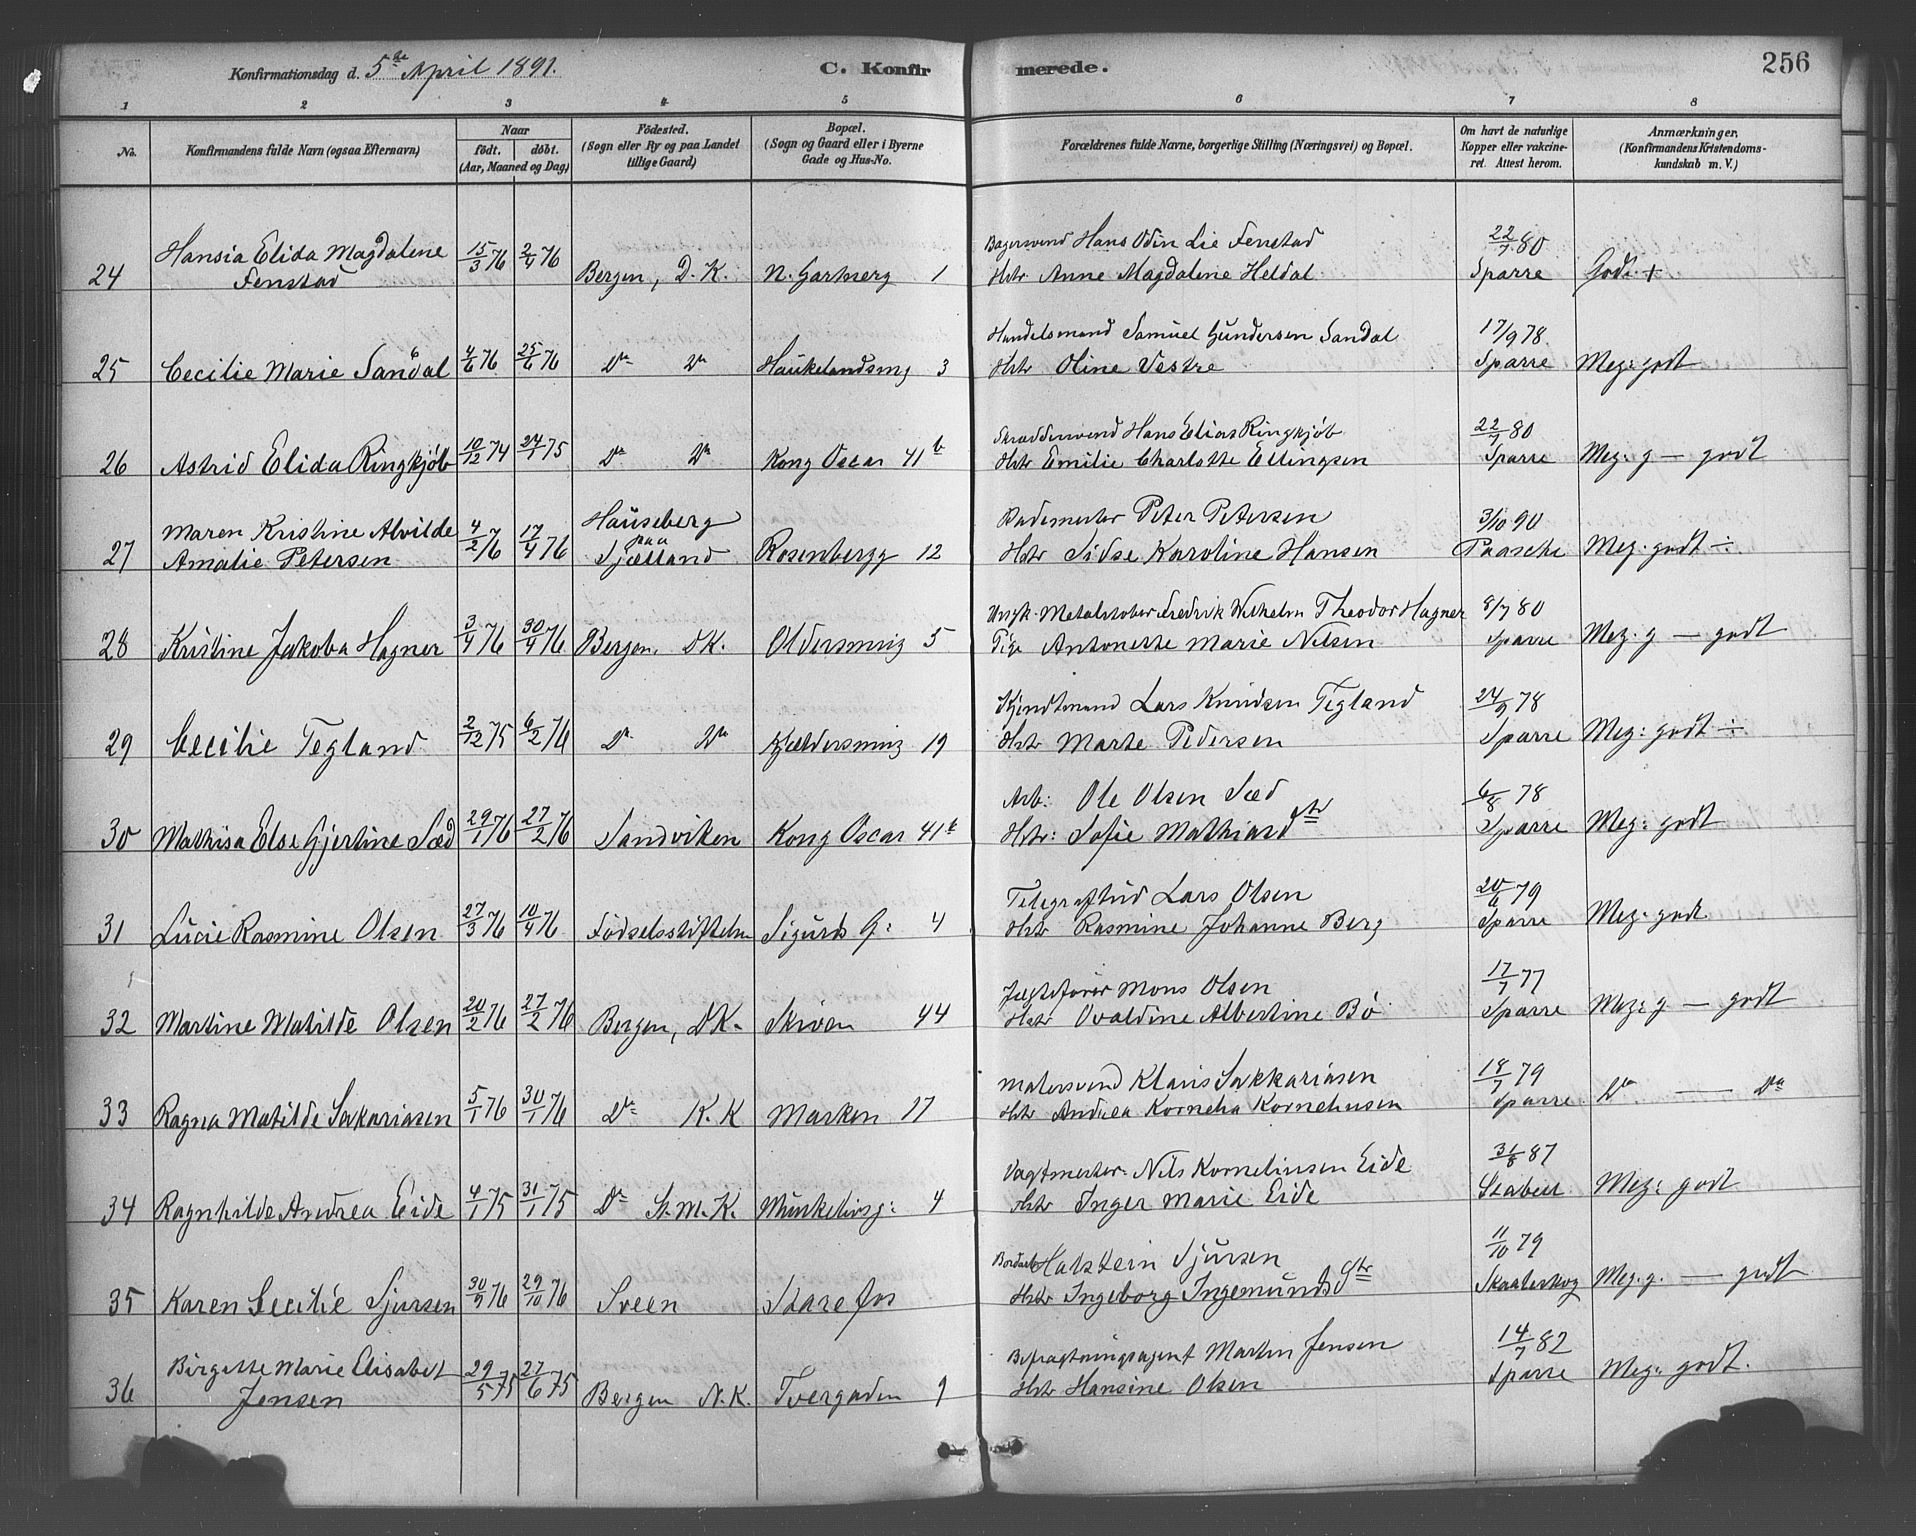 Konfirmationsdag d. 5te April 1891.
C. Konfirmerede.
256
1 2 3 4 5 6 7 8
No.
Konfirmandens fulde Navn (ogsaa Efternavn)
Naar
födt. döbt.
(Aar, Maaned og Dag)
Födested.
(Sogn eller By og paa Landet
tillige Gaard)
Bopæl.
(Sogn og Gaard eller i Byerne
Gade og Hus-No.
Forældrenes fulde Navne, borgerlige Stilling (Næringsvei) og Bopæl.
Om havt de naturlige
Kopper eller vakcine-
ret. Attest herom.
Anmærkninger.
(Konfirmandens Kristendoms-
kundskab m. V.)
Hansia Elida Magdalene 15/3 76 2/4 76 Bagersvend Hans Odin Lie Fenstad 22/7 80
24 Fenstad Bergen, D. K. N. Gartnerg 1 Hstr Anne Magdalene Heldal Sparre Godt +
Handelsmand Samuel Gundersen Sandal 17/9 78.
25 Cecilie Marie Sandal 4/6 76 25/6 76 Do Do Haukelandsmg 3 Hstr Oline Vestre Sparre Meg: godt
Skræddersvend Hans Elias Ringkjøb 22/7 80
26 Astrid Elida Ringkjøb 10/12 74 24/1 75 Do Do Kong Oscar 41 b Hstr Emilie Charlotte Ellingsen Sparre Meg: g — godt
Maren Kristine Alvilde 4/2 76 17/4 76 Hauseberg paa Bademester Peter Petersen 3/10 90
27 Amalie Petersen Sjælland Rosenbergg 12 Hstr Sidse Karoline Hansen Paasche Meg. godt ÷
Ungk. Metalstøber Fredrik Wilhelm Theodor Hagner 8/7 80
28 Kristine Jakoba Hagner 3/4 76 30/4 76 Bergen. DK. Oldersmug 5 Pige Antonette Marie Nilsen Sparre Meg. g — godt
Kjendtmand Lars Knudsen Tegland 24/9 78
29 Cecilie Tegland 2/12 75 6/2 76 Do Do Kjeldersmug 19 Hstr Marte Pedersen Sparre Meg: godt ÷
Arb: Ole Olsen Sæd 6/8 78
30 Mathisa Else Gjertine Sæd 29/1 76 27/2 76 Sandviken Kong Oscar 41 b Hstr: Sofie Mathiasdtr Sparre Meg: godt
Telegrafbud Lars Olsen 20/6 79
31 Lucie Rasmine Olsen 27/3 76 10/4 76 Fødselsstiftelsn Sigurds G: 4 Hstr Rasmine Johanne Berg Sparre Meg: godt
Jægtefører Mons Olsen 17/7 77
32 Martine Matilde Olsen 20/2 76 27/2 76 Bergen, DK. Skiven 44 Hstr Ovaldine Albertine Bø Sparre Meg: g — godt
Malersvend Klaus Sakkariasen 18/7 79
33 Ragna Matilde Sakariasen 5/1 76 30/1 76 Do K. K Marken 17 Hstr Andrea Kornelia Korneliusen Sparre Do — Do
Vagtmester. Nils Korneliusen Eide 31/8 87
34 Ragnhilde Andrea Eide 4/1 75 31/1 75 Do St. M. K. Munkelivsg: 4 Hstr Inger Marie Eide Stabell Meg: godt
Bordarb Halstein Sjursen 11/10 79
35 Karen Cecilie Sjursen 30/9 76 29/10 76 Sveen Starefos Hstr Ingeborg Ingemundsdtr Skaaterskog Meg. g. — godt
Birgitte Marie Elisabet 29/5 75 27/6 75 Befragtningsagent Martin Jensen 14/7 82
36 Jensen Bergen N. K. Tvergaden 9 Hstr Hansine Olsen Sparre Meg: godt.